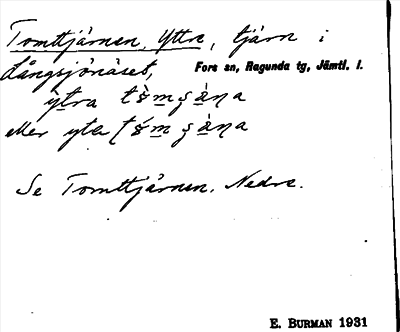 Tomttjärnen, Yttre, tjärn i
Långsjönäset, Fors sn, Ragunda tg, Jämtl. l.
ytra
eller yta
Se Tomttjärnen, Nedre.
E. BURMAN 1931